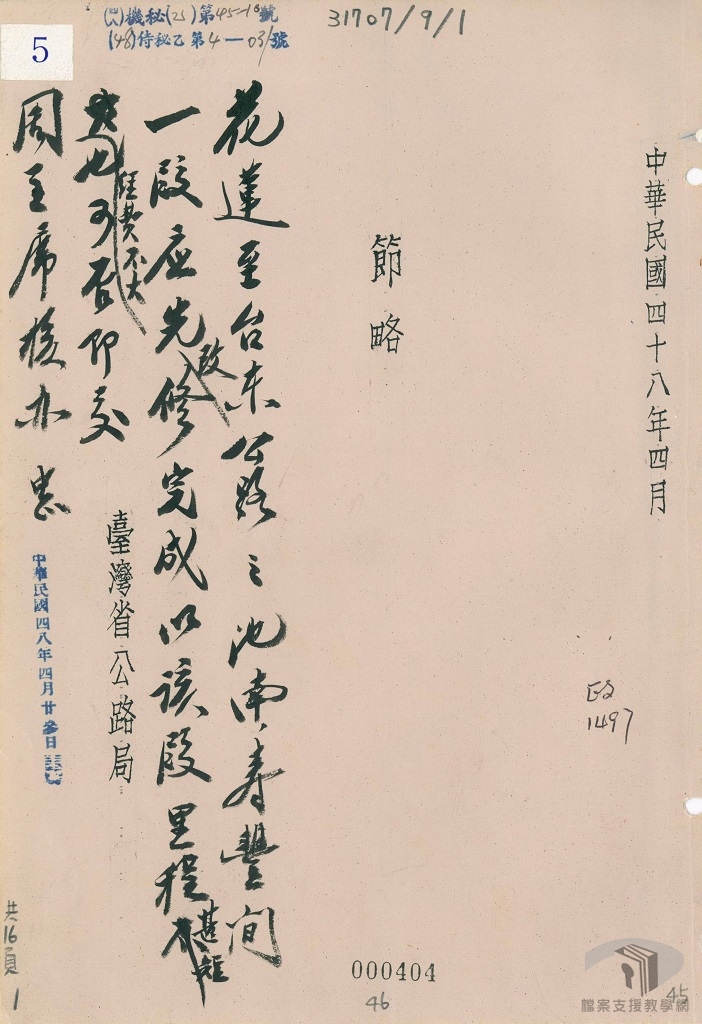 (四八)機秘(乙)第45-18號
(48)侍秘乙第4—031號
31707/9/1
5
中華民國四十八年四月
節略
政
1497
花蓮至台東公路之池南壽豐間
一段應先修改完成以該段里程甚短
經費不大
也可否即交
周主席核办
臺灣省公路局
中華民國四八年四月廿參日
共16頁
1
000404
46
45
檔案支援教學網